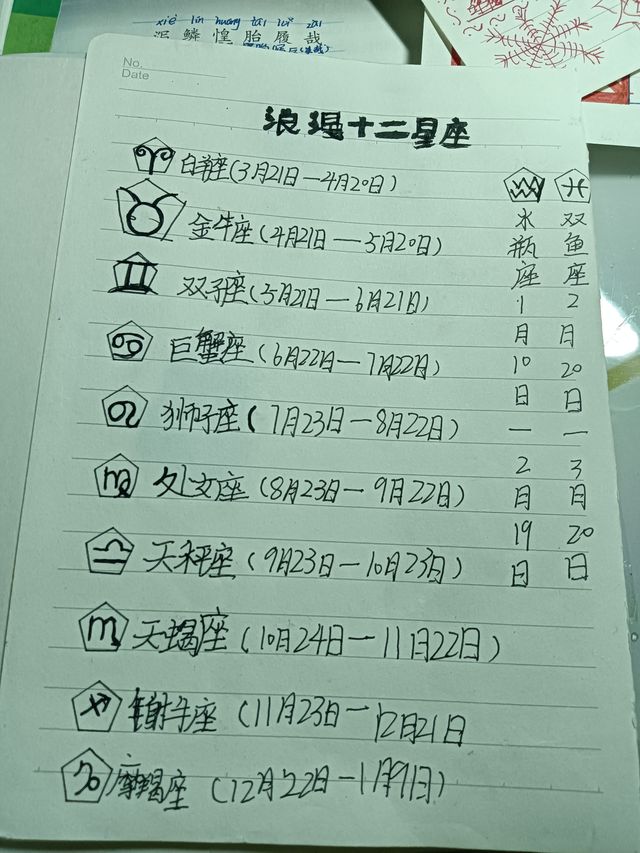 xiè lín huáng tāi lǚ zāi
泥 鳞 惶 胎 履 哉
No.
Date
浪漫十二星座
白羊座(3月21日—4月20日)
金牛座(4月21日—5月20日)
双子座(5月21日—6月21日)
巨蟹座(6月22日—7月22日)
狮子座(7月23日—8月22日)
处女座(8月23日—9月22日)
天秤座(9月23日—10月23日)
天蝎座(10月24日—11月22日)
射手座(11月23日—12月21日
摩羯座(12月22日—1月9日)
水瓶座1月10日—2月19日
双鱼座2日20日—3月20日